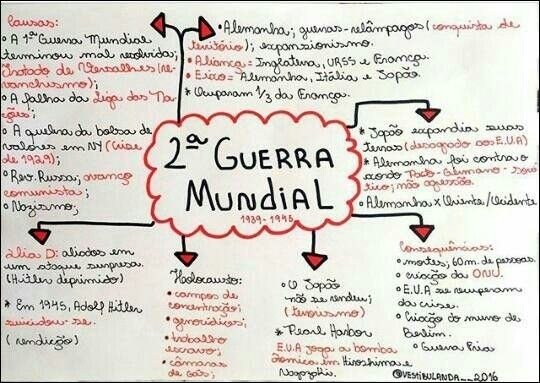 Causas:
• A 1ª Guerra Mundial
terminou mal resolvida;
Tratado de Versalhes (re-
vanchismo);
• A falha da Liga das Na-
ções;
• A quebra da bolsa de
valores em NY (Crise
de 1929);
• Rev. Russa; avanço
comunista;
• Nazismo;
• Alemanha; guerras-relâmpagos (conquista de
território); expansionismo.
• Aliança = Inglaterra, URSS e França.
• Eixo = Alemanha, Itália e Japão.
* Ocuparam 1/3 da França.
2ª GUERRA
MUNDIAL
1939-1945
* Japão expandia suas
terras (desagrado aos E.U.A)
* Alemanha foi contra o
acordo Pacto-Germano-sovié
tico; não agressão.
• Alemanha x Oriente/Ocidente
Dia D: aliados em
um ataque surpresa.
(Hitler deprimido)
* Em 1945, Adolf Hitler
suicidou-se.
(rendição)
Holocausto:
• campos de
concentração;
• genocídios;
• trabalho
escravo;
• câmaras
de gás;
• O Japão
não se rendeu;
(terrorismo)
* Pearl Harbor
E.U.A joga a bomba
atômica em Hiroshima e
Nagazaki.
Consequências:
• mortes; 60m. de pessoas.
• criação da ONU.
• E.U.A se recuperam
da crise.
• Criação do muro de
Berlim.
• Guerra Fria
@VESTIBULANDA__2016